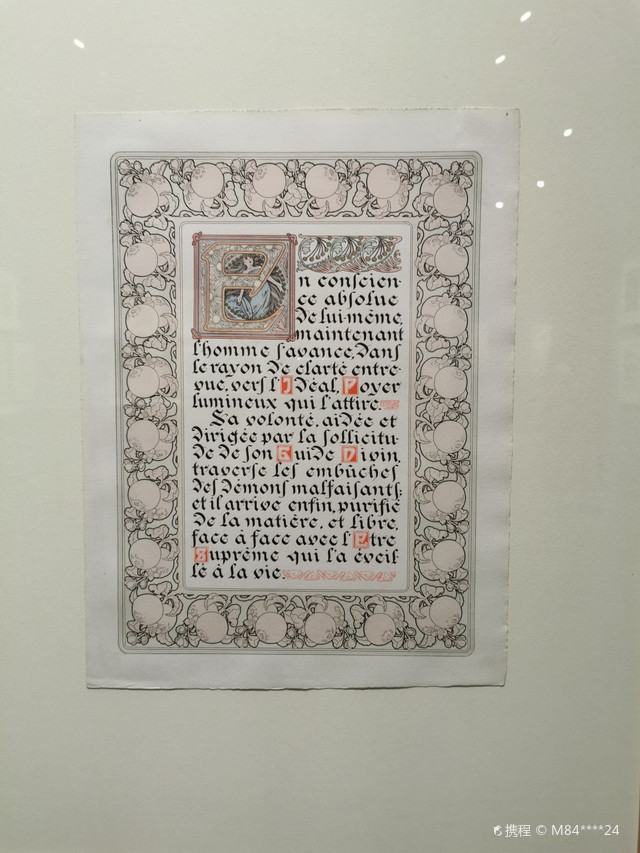 En conscien-
ce absolue
de lui-même,
maintenant
l'homme s'avance, dans
le rayon de clarté entre-
vue, vers l'Idéal, Foyer
lumineux qui l'attire.
Sa volonté, aidée et
dirigée par la sollicitu-
de de son Guide Divin,
traverse les embûches
des démons malfaisants;
et il arrive enfin, purifié
de la matière, et libre,
face à face avec l'Etre
Suprême qui l'a éveil
lé à la vie.
携程 © M84****24